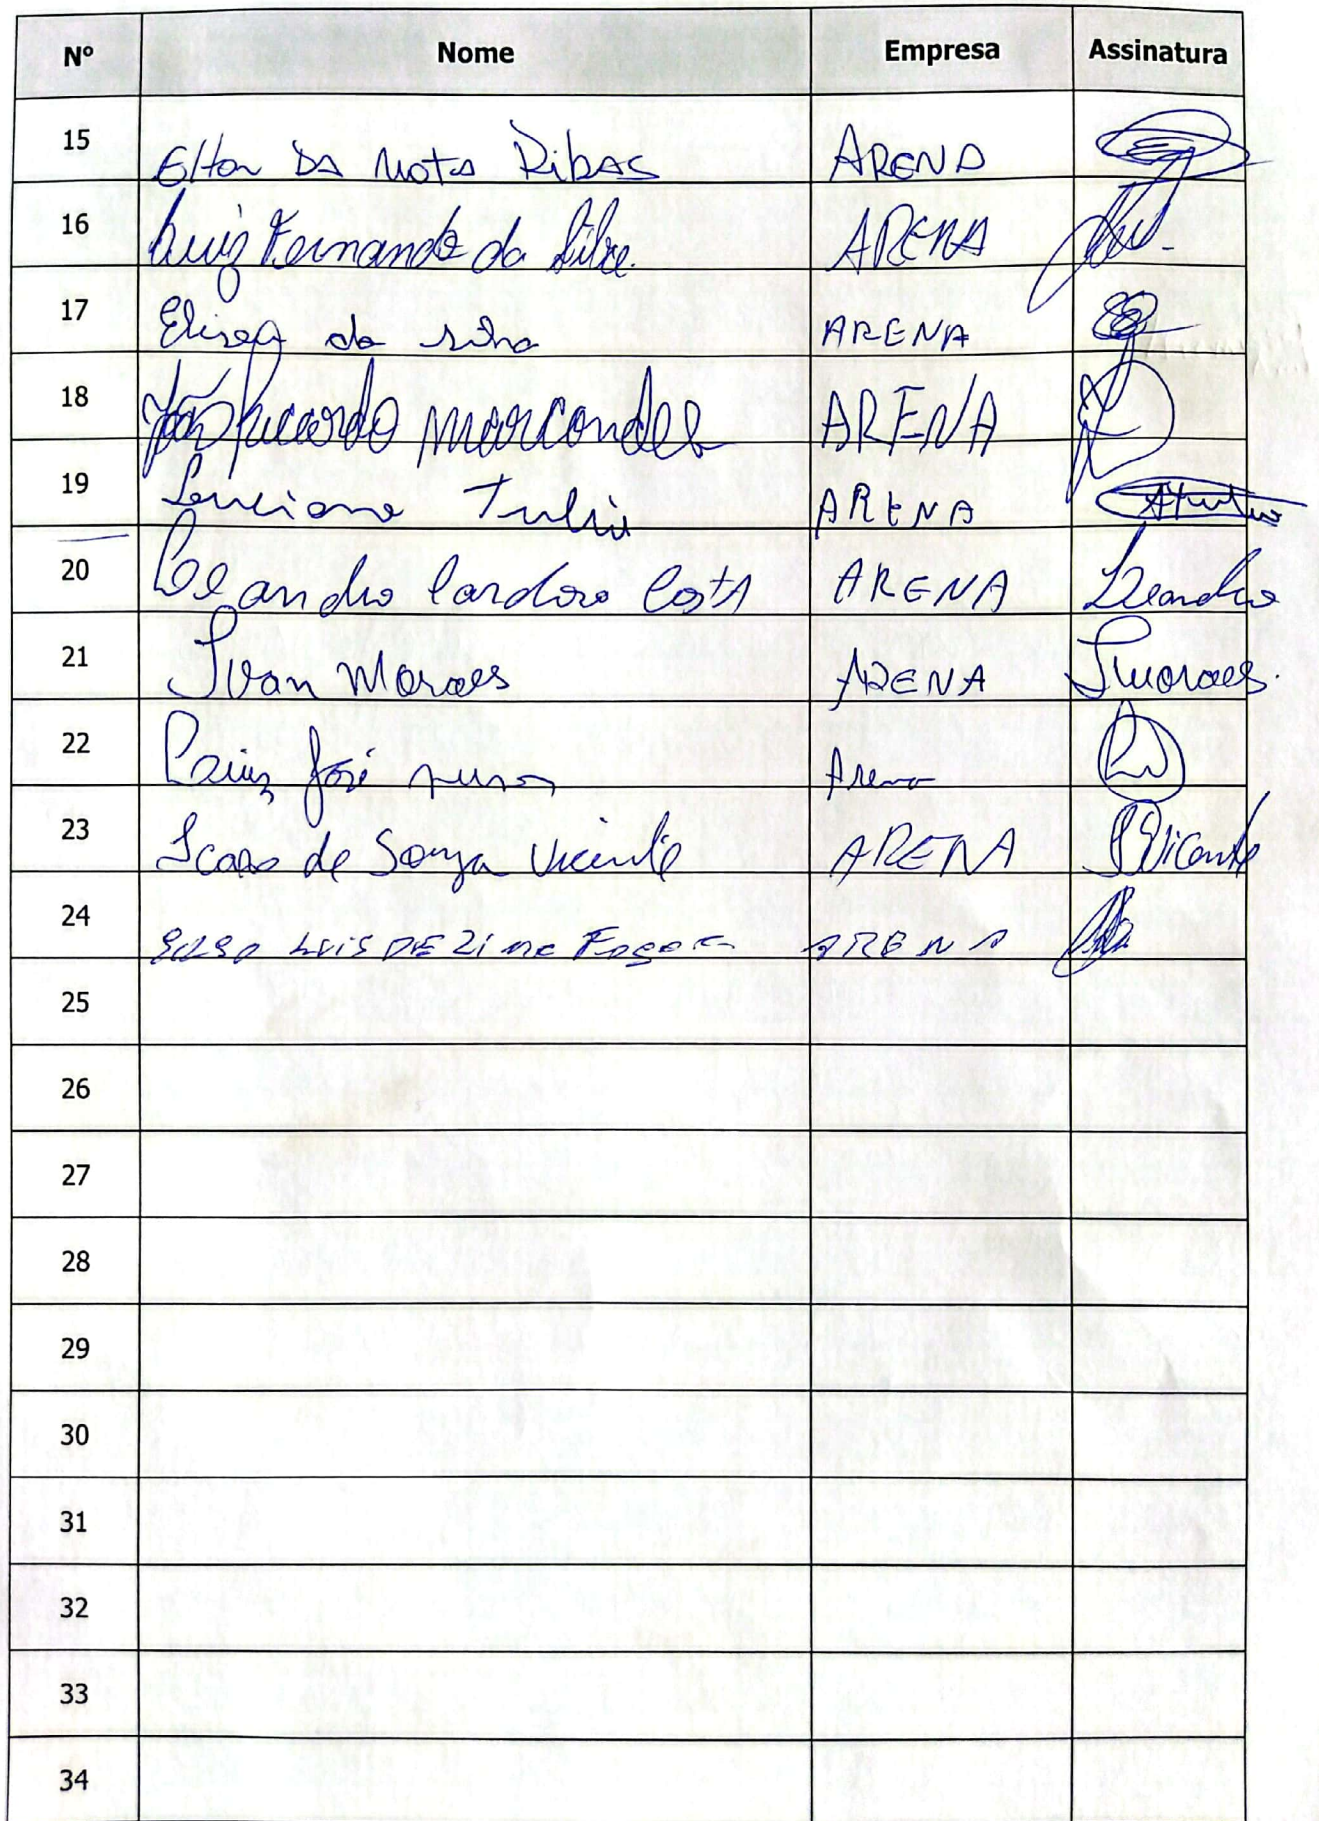 Nº Nome Empresa Assinatura
15 Elton DA Mota Ribas ARENA
16 Luiz Fernando da Silva ARENA
17 Eliseu da Silva ARENA
18 João Ricardo Marcondes ARENA
19 Luciano Tulio ARENA
20 Leandro Cardoso Costa ARENA Leandro
21 Ivan Moraes ARENA Imoraes.
22 Luiz José Arena
23 Icaro de Souza Vicente ARENA Vicente
24 Luis DE Lima ARENA
25
26
27
28
29
30
31
32
33
34